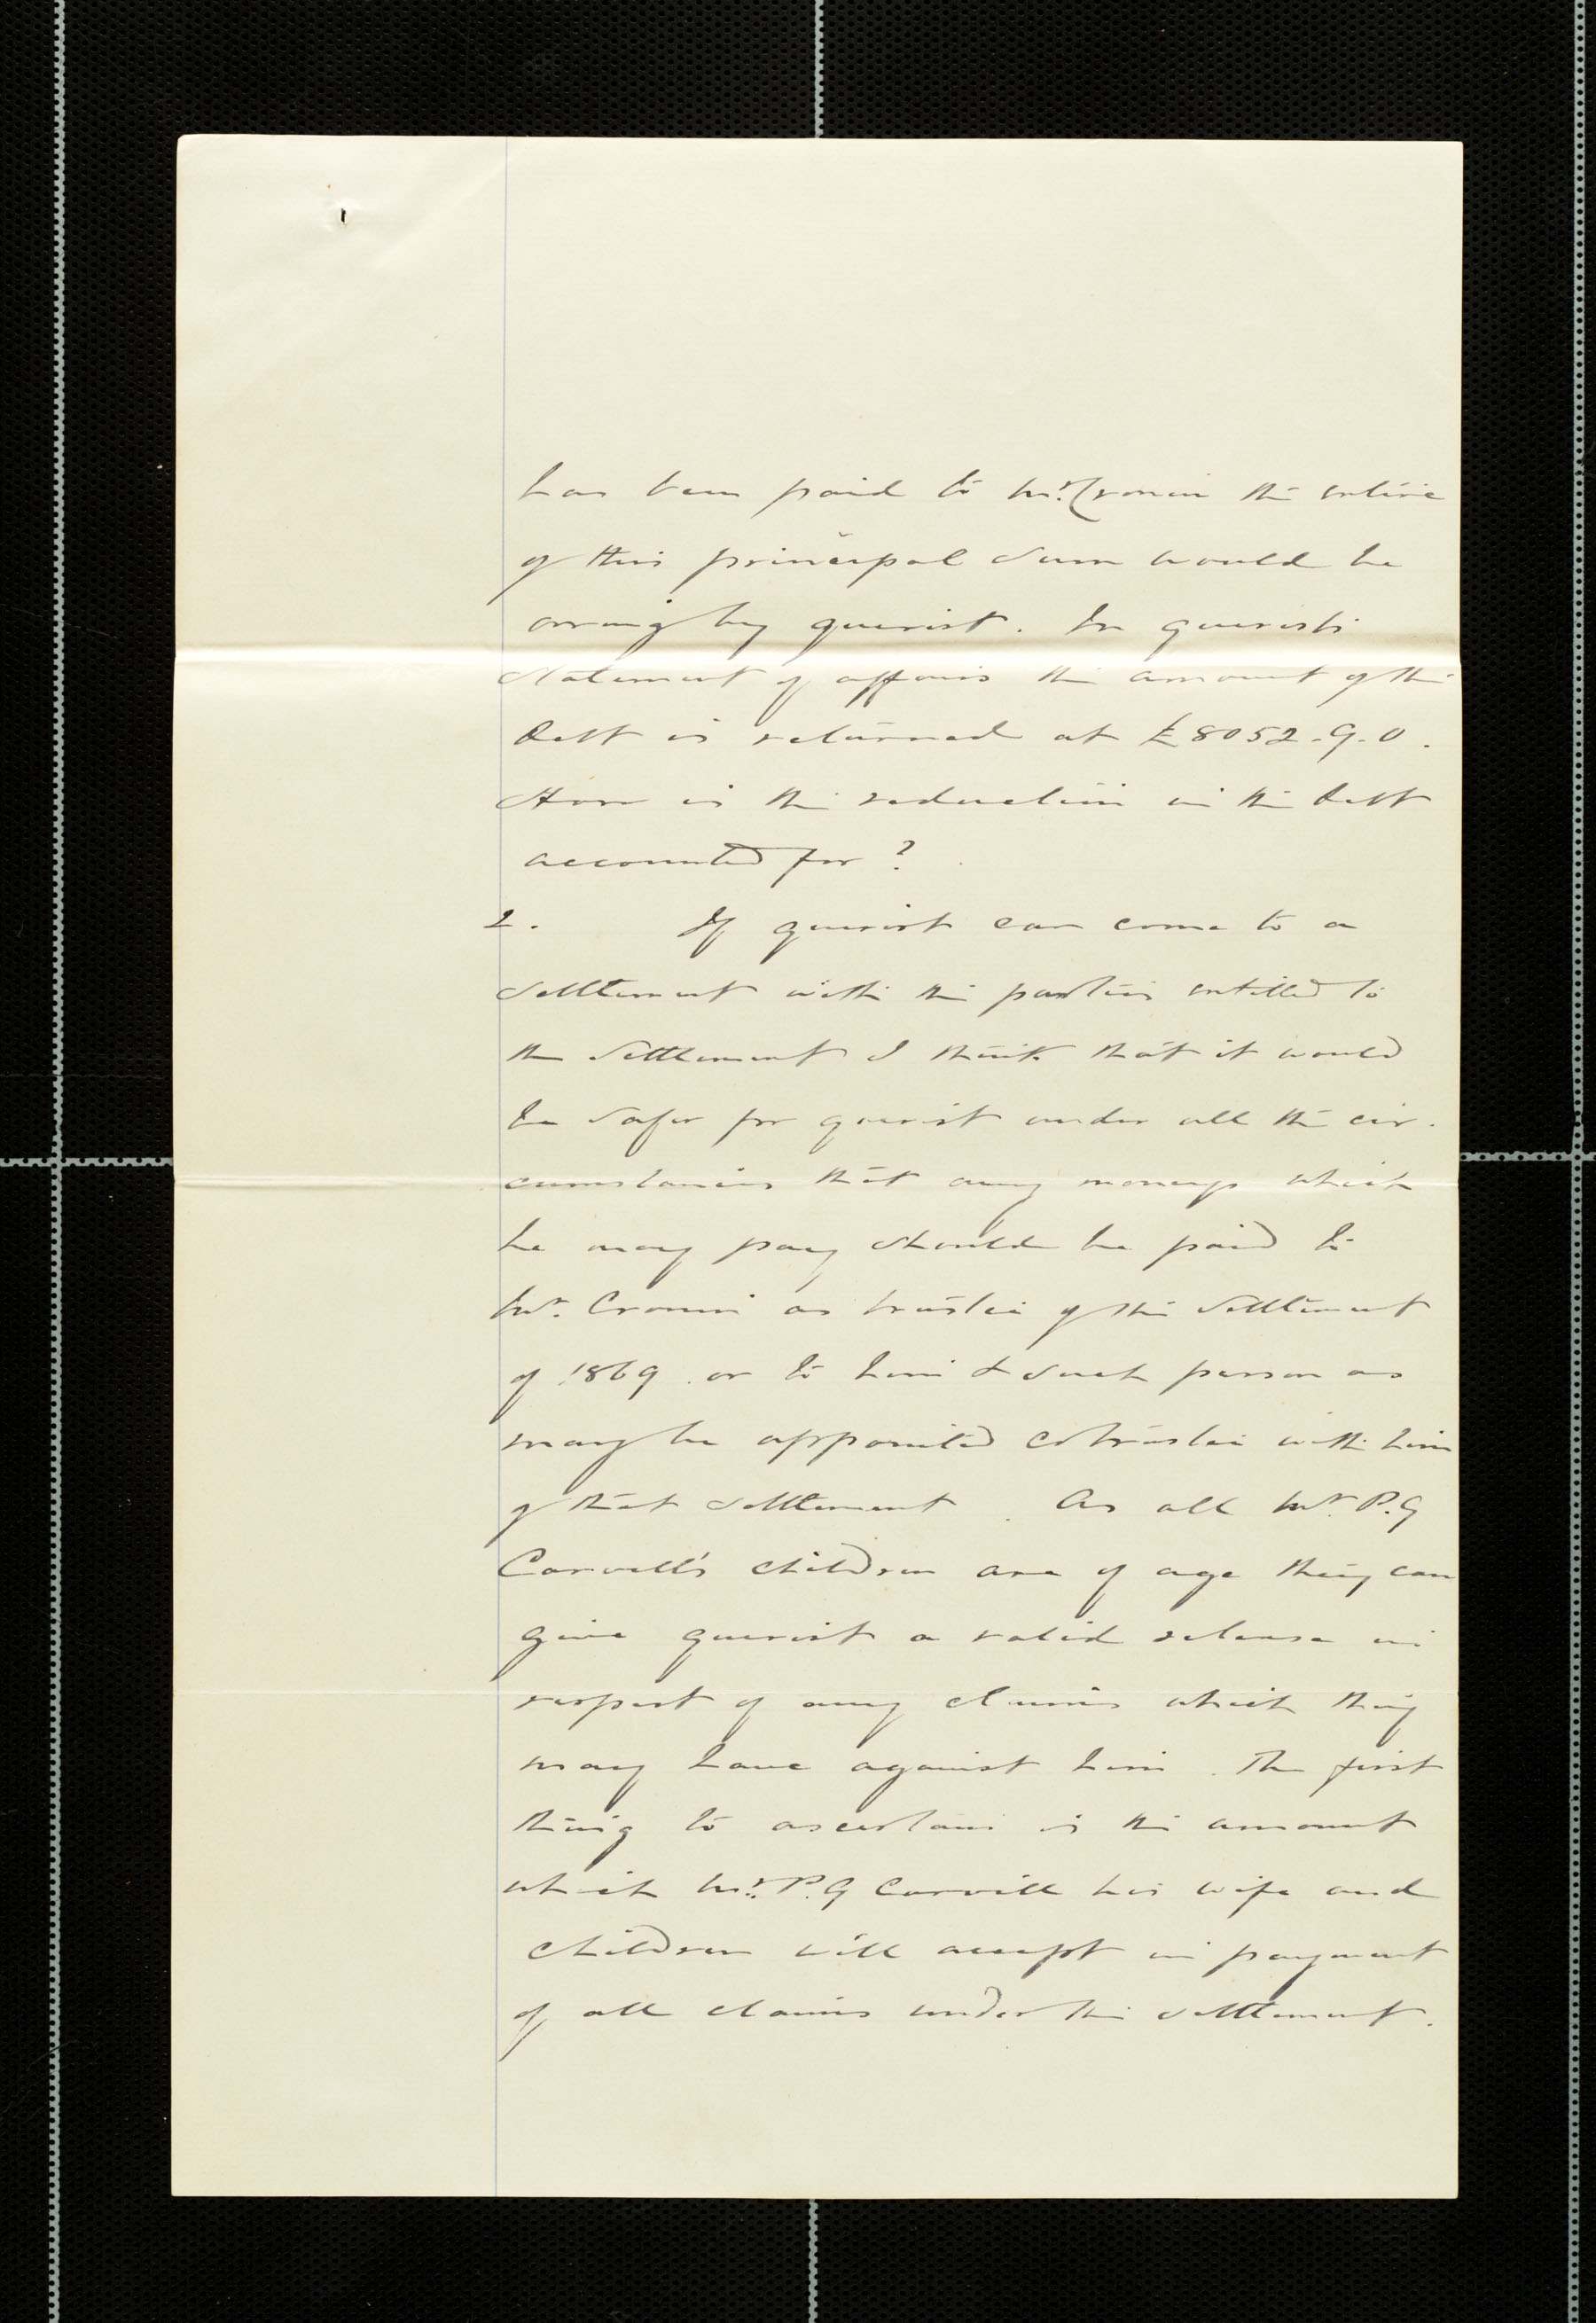 has been paid to Mr. Cronin the entire
of this principal sum would be
owing by querist. In querist's
statement of affairs the amount of the
debt is returned at £8052-9-0.
How is the reduction in the debt
accounted for ?
2. If querist can come to a
settlement with the parties entitled to
the settlement I think that it would
be safer for querist under all the cir-
cumstances that any moneys which
he may pay should be paid to
Mr. Cronin as trustee of the settlement
of 1869 . or to him & such person as
may be appointed cotrustee with him
of that settlement . As all Mr. P.G
Carvill's children are of age they can
give querist a valid release in
respect of any claims which they
may have against him . The first
thing to ascertain is the amount
which Mr. P.G Carvill his wife and
children will accept in payment
of all claims under the settlement.